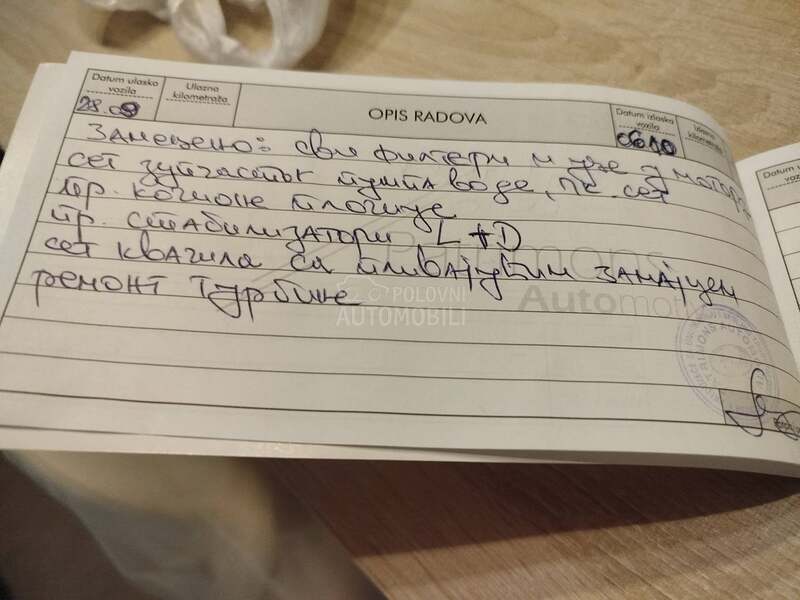 Datum ulaska vozila
Ulazna kilometraža
OPIS RADOVA
Datum izlaska vozila
Izlazna
28.08
06.10
Замењено: сви филтери и уље у мотору
сет зупчастьк пумпа воде, пк. сет
пр. кочионе плочице
пр. стабилизатори L + D
сет квачила са пливајућим замајцем
ремонт турбине
POLOVNI
AUTOMOBILI
Automo
Datum
vozila